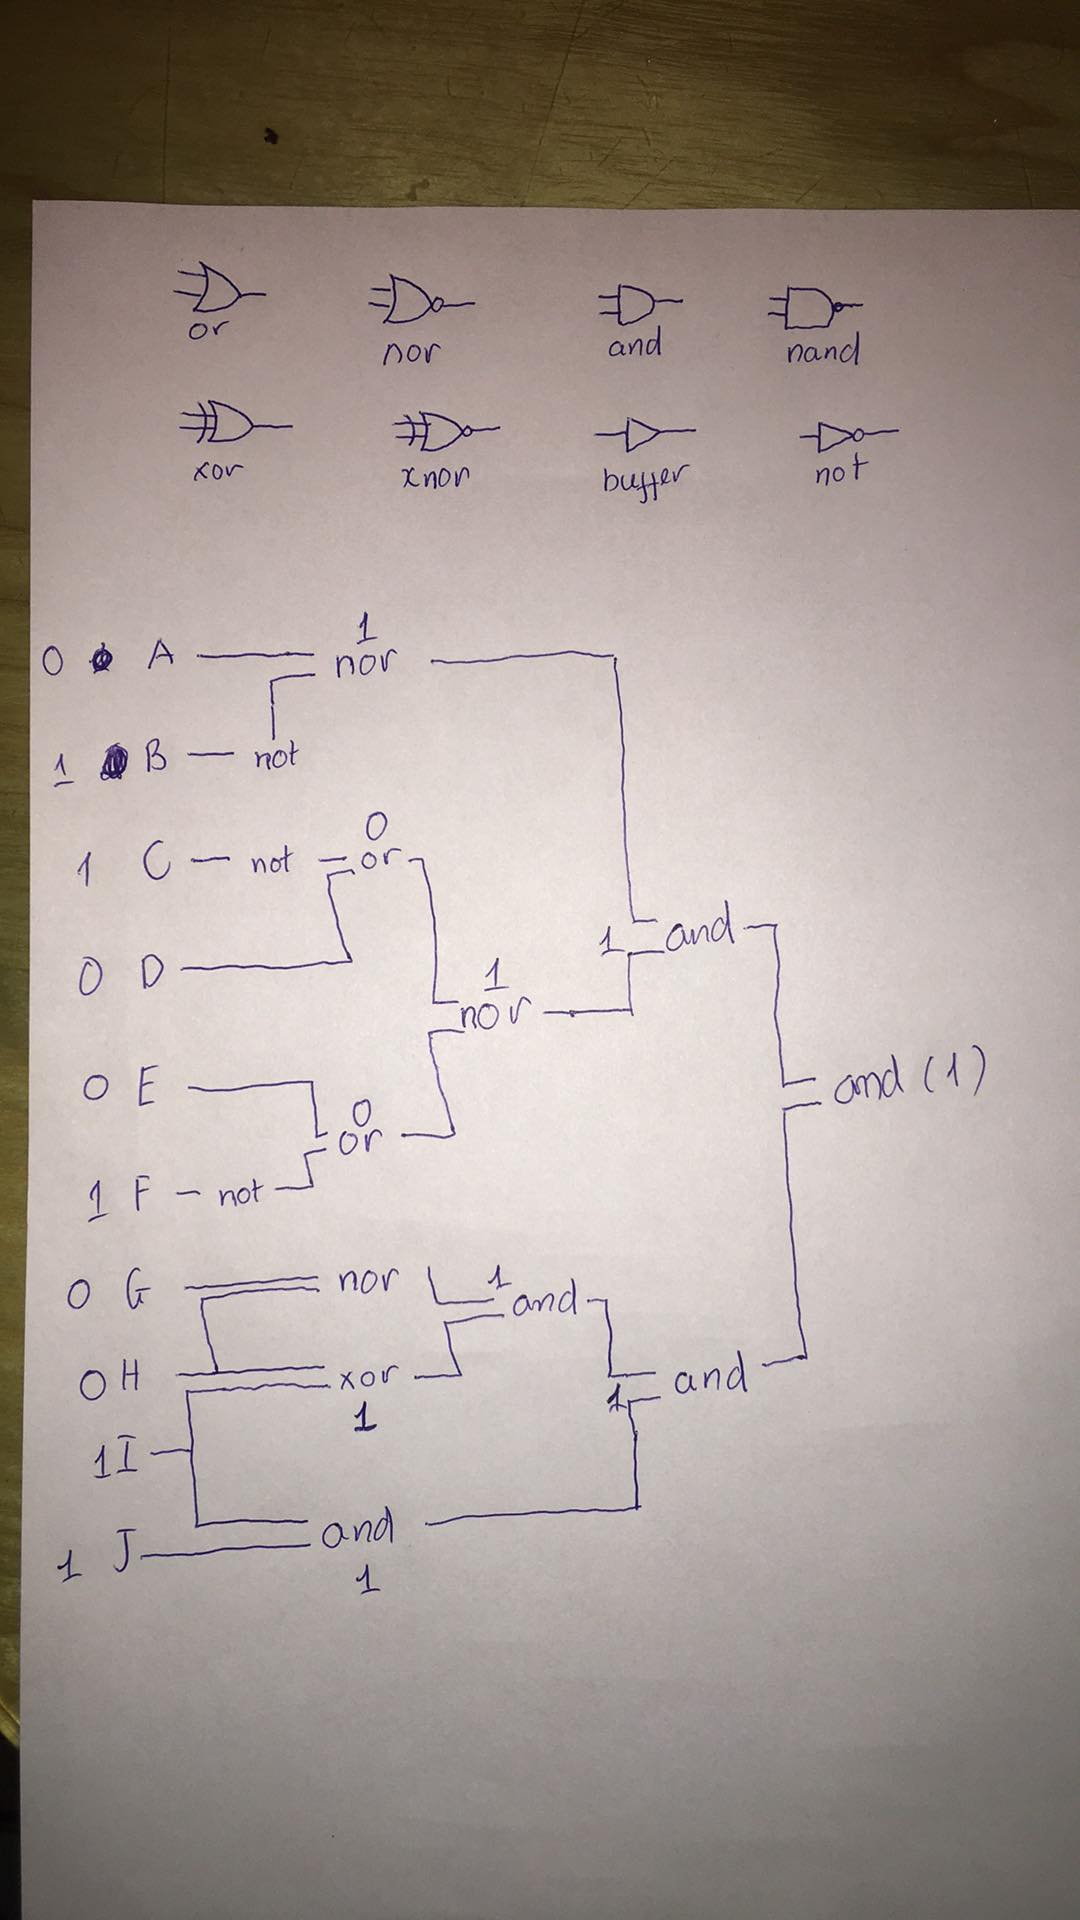 or nor and nand
xor xnor buffer not
1
0 A nor
1 B not
0
1 C not or
1 and
0 D
1
nor
0 E and (1)
0
or
1 F not
0 G nor 1 and
0 H xor 1 and
1
1 I
1 J and
1